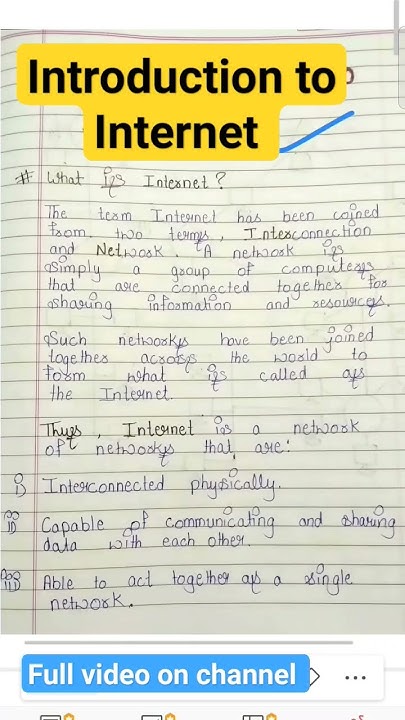 Introduction to
Internet
# What is Internet?
The term Internet has been coined
from two terms, Interconnection
and Network. A network is
simply a group of computers
that are connected together for
sharing information and resources.
Such networks have been joined
together across the world to
form what is called as
the Internet.
Thus, Internet is a network
of networks that are:
i) Interconnected physically.
ii) Capable of communicating and sharing
data with each other.
iii) Able to act together as a single
network.
Full video on channel